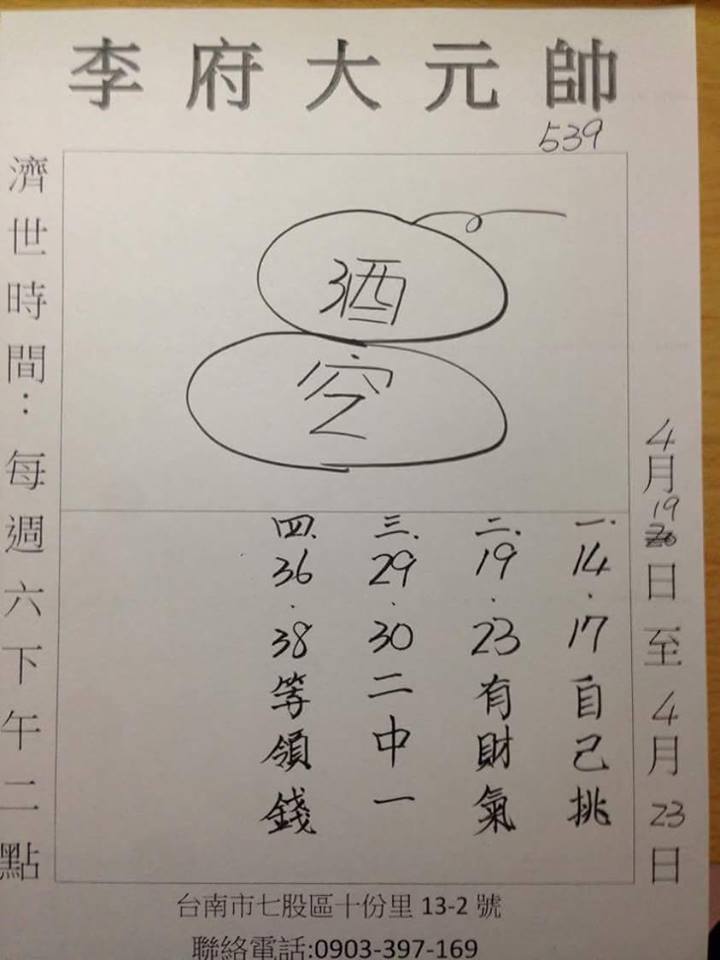 李府大元帥
539
酒
空
4月19日至4月23日
一.14.17自己挑
二.19.23有財氣
三.29.30二中一
四.36.38等領錢
濟世時間:每週六下午二點
台南市七股區十份里13-2號
聯絡電話:0903-397-169